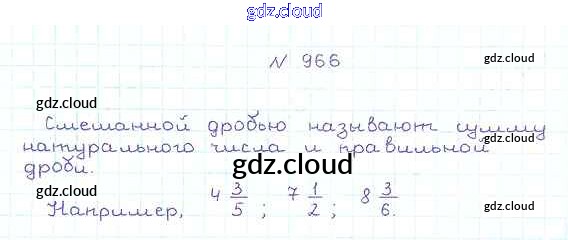 gdz.cloud
N 966
gdz.cloud
gdz.cloud
Смешанной дробью называют сумму
gdz.cloud
натурального числа и правильной
дроби.
gdz.cloud
gdz.cloud
Например, 4 3/5 ; 7 1/2 ; 8 3/6.
gdz.cloud
gdz.cloud